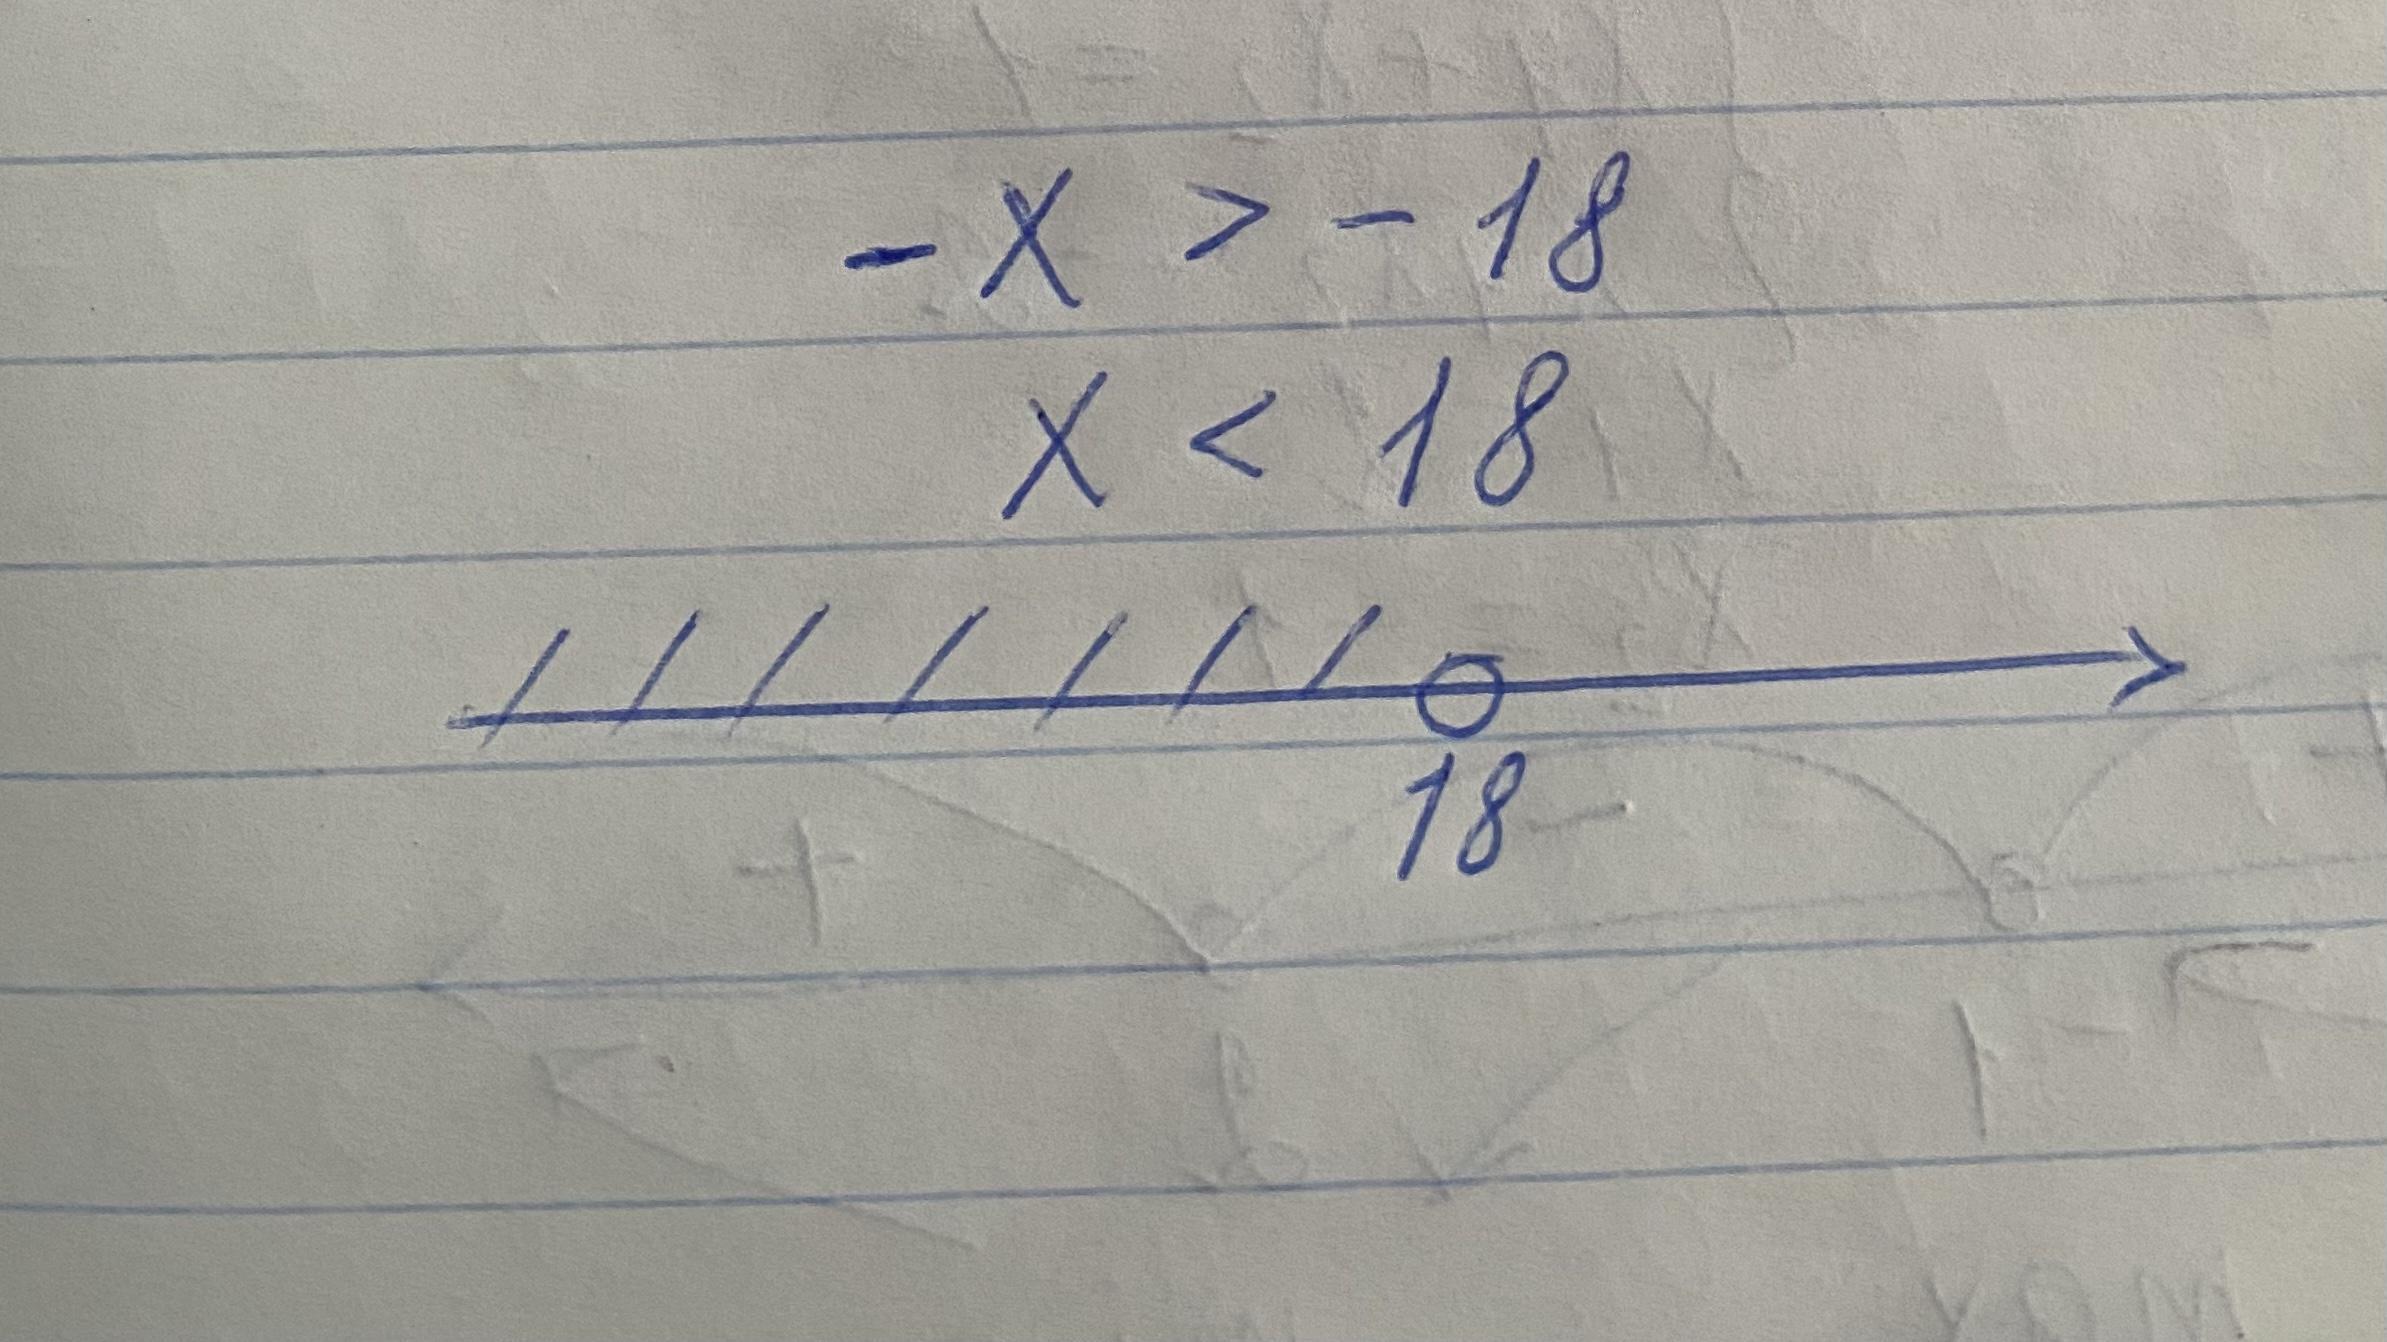 -x > -18
x < 18
18